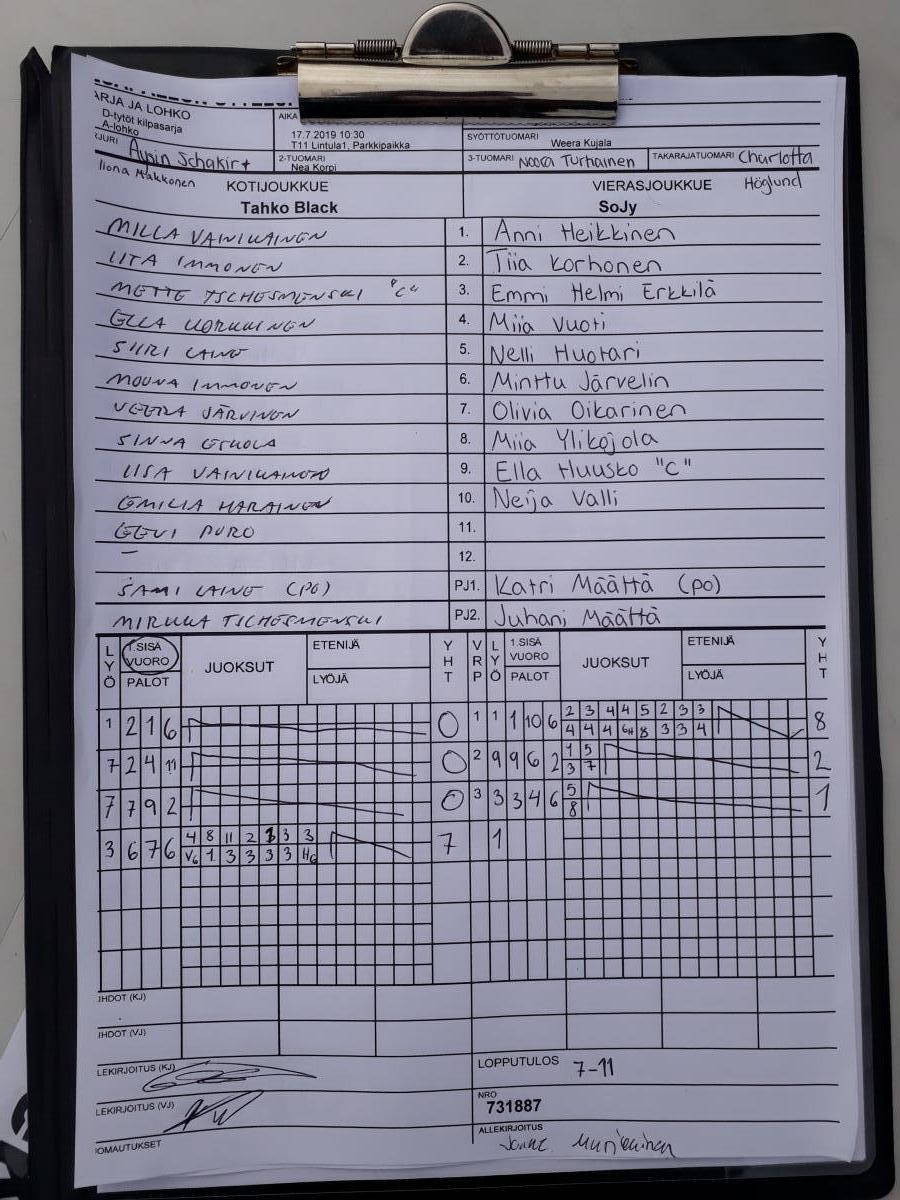 ARJA JA LOHKO
D-tytöt kilpasarja
A-lohko
AIKA
17.7.2019 10:30
T11 Lintula1, Parkkipaikka
SYÖTTÖTUOMARI
Weera Kujala
Aysin Schakir
2-TUOMARI
Nea Korpi
3-TUOMARI Noora Turhainen
TAKARAJATUOMARI Charlotta
Höglund
Ilona Makkonen
KOTIJOUKKUE VIERASJOUKKUE
Tahko Black SoJy
MILLA VAINIKAINEN 1. Anni Heikkinen
IITA IMMONEN 2. Tiia Korhonen
METTE TSCHESMENSKI "C" 3. Emmi Helmi Erkkilä
ELLA KORKKINEN 4. Miia Vuoti
SIIRI LAINE 5. Nelli Huotari
MOONA IMMONEN 6. Minttu Järvelin
VEERA JÄRVINEN 7. Olivia Oikarinen
SINNA ESKOLA 8. Miia Ylikojola
IISA VAINIKAINEN 9. Ella Huusko "C"
EMILIA HARAINEN 10. Neija Valli
EEVI PURO 11.
– 12.
SAMI LAINE (PO) PJ1. Katri Määttä (po)
MIRKKA TSCHESMENSKI PJ2. Juhani Määttä
LYÖ 1.SISÄ VUORO PALOT JUOKSUT ETENIJÄ LYÖJÄ YHT VRP LYÖ 1.SISÄ VUORO PALOT JUOKSUT ETENIJÄ LYÖJÄ YHT
1 2 1 6 0 1 1 1 10 6 2 3 4 4 5 2 3 3 8
4 4 4 6H 8 3 3 4
7 2 4 11 0 2 9 9 6 2 1 5 2
3 7
7 7 9 2 0 3 3 3 4 6 5 1
8
3 6 7 6 4 8 11 2 1 3 3 7 1
V6 1 3 3 3 3 H6
IHDOT (KJ)
IHDOT (VJ)
LEKIRJOITUS (KJ)
LOPPUTULOS 7-11
LEKIRJOITUS (VJ)
NRO
731887
OMAUTUKSET
ALLEKIRJOITUS